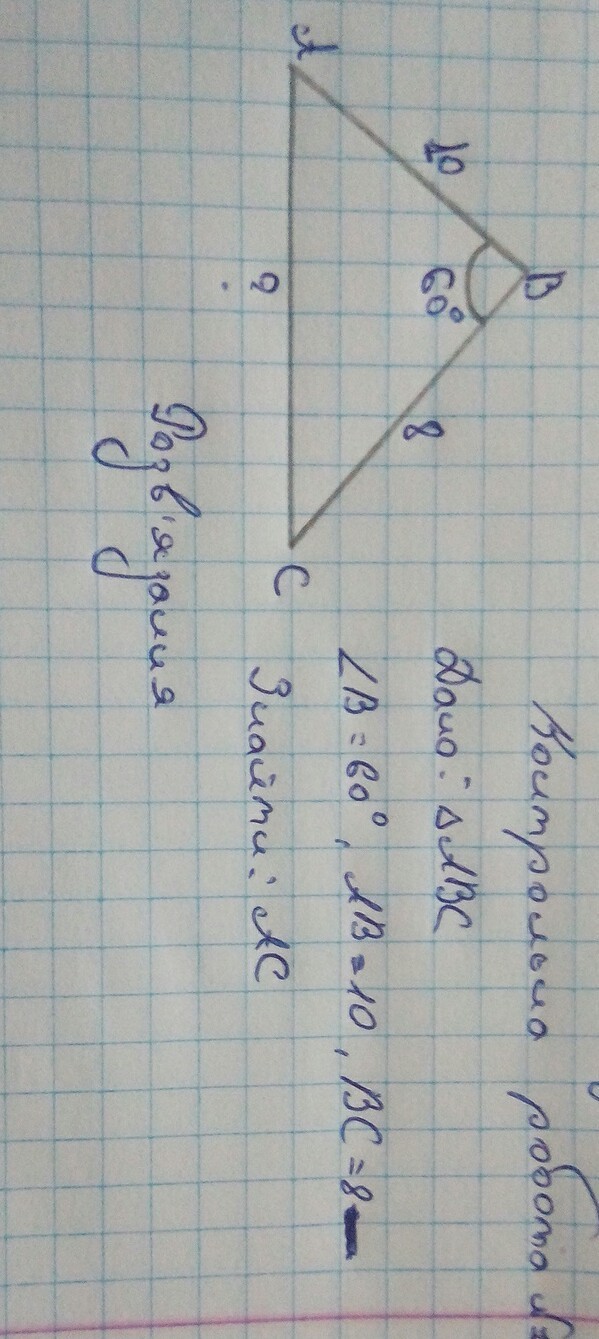 Контрольна робота №
Дано: ΔABC
∠B = 60°, AB = 10, BC = 8
Знайти: AC
A
10
B
60°
8
?
C
Розв'язання